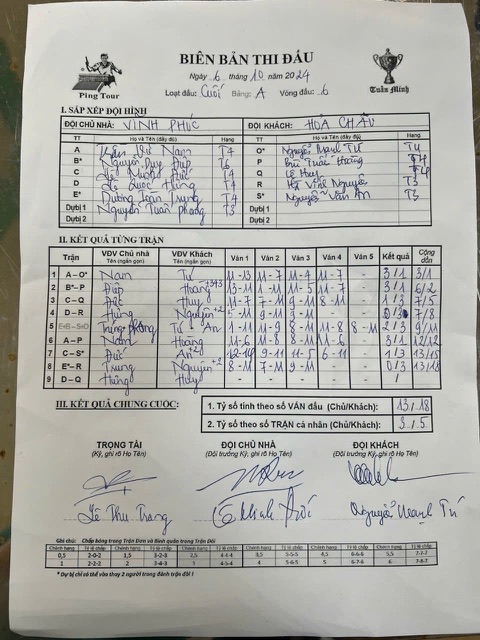 BIÊN BẢN THI ĐẤU
Ping Tour
Ngày 6 tháng 10 năm 2024
Tuấn Minh
Loạt đấu: Cuối Bảng: A Vòng đấu: 6
I. SẮP XẾP ĐỘI HÌNH
ĐỘI CHỦ NHÀ: VĨNH PHÚC ĐỘI KHÁCH: HOA CHÂU
TT Họ và Tên (đầy đủ) Hạng TT Họ và Tên (đầy đủ) Hạng
A Nam T4 O* Nguyễn Mạnh Tú T4
B* Nguyễn Duy Điệp P Bùi Tuấn Hoàng T4
C Đức T4 Q Lê Huy T4
D Lê Quốc Hùng T4 R Nguyễn T3
E* Dương Trung T4 S* Nguyễn Văn An T3
Dự bị 1 Nguyễn Tuấn Phong T3 Dự bị 1
Dự bị 2 Dự bị 2
II. KẾT QUẢ TỪNG TRẬN
Trận VĐV Chủ nhà VĐV Khách Ván 1 Ván 2 Ván 3 Ván 4 Ván 5 Kết quả Cộng dồn
Tên (ngắn gọn) Tên (ngắn gọn)
1 A – O* Nam Tú 11-13 11-7 11-4 11-7 - 3/1 3/1
2 B* – P Điệp Hoàng 3/1 6/2
3 C – Q Đức Huy 11-7 1/3 7/5
4 D – R Hùng Nguyễn+2 8-11 9-11 9-11 - - 0/3 7/8
5 E+B – S+O Trung Phong Tú An 1-11 11-9 8-11 11-8 8-11 2/3 9/11
6 A – P Nam Hoàng 11-6 11-8 11-7 - 3/1 12/12
7 C – S* Đức An+2 12-14 9-11 11-5 6-11 - 1/3 13/15
8 E* – R Trung Nguyễn+2 8-11 7-11 9-11 - - 0/3 13/18
9 D – Q Hùng Huy - - - - - /
III. KẾT QUẢ CHUNG CUỘC:
1. Tỷ số tính theo số VÁN đấu (Chủ/Khách): 13/18
2. Tỷ số theo số TRẬN cá nhân (Chủ/Khách): 3/5
TRỌNG TÀI ĐỘI CHỦ NHÀ ĐỘI KHÁCH
(Ký, ghi rõ Họ Tên) (Đội trưởng Ký, ghi rõ Họ Tên) (Đội trưởng Ký, ghi rõ Họ Tên)
Lê Thu Trang Nguyễn Mạnh Tú
Ghi chú: Chấp bóng trong Trận Đơn và Bình quân trong Trận Đôi
Chênh hạng Tỷ lệ chấp Chênh hạng Tỷ lệ chấp Chênh hạng Tỷ lệ chấp Chênh hạng Tỷ lệ chấp Chênh hạng Tỷ lệ chấp Chênh hạng Tỷ lệ chấp
0,5 2-0-2 1,5 3-2-3 2,5 4-4-4 3,5 5-5-5 4,5 6-6-6 5,5 7-7-7
1 2-2-2 2 3-4-3 3 4-5-4 4 5-6-5 5 6-7-6 6 7-8-7
* Dự bị chỉ có thể vào thay 2 người trong đánh trận đôi !